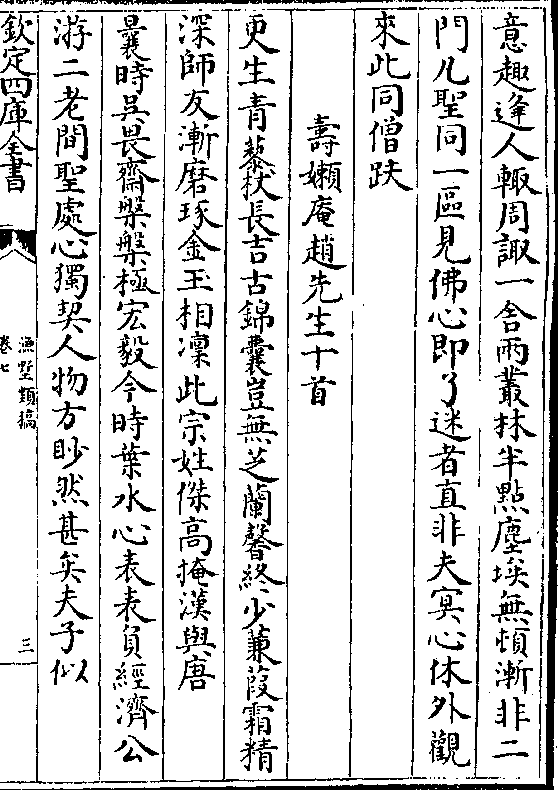 意趣逢人輙周諏一舎兩叢林半點塵埃無頓漸非二
門凡聖同一區見佛心即了迷者直非夫寞心休外觀
來此同僧趺
壽嬾庵趙先生十首
更生青藜杖長吉古錦囊豈無芝蘭馨終少蒹葭霜精
深師友漸磨琢金玉相凜此宗姓傑高掩漢與唐
曩時吳畏齋槃槃極宏毅今時葉水心表表負經濟公
游二老間聖處心獨契人物方眇然甚矣夫子似
欽定四庫全書
漁墅類稿
卷七
三